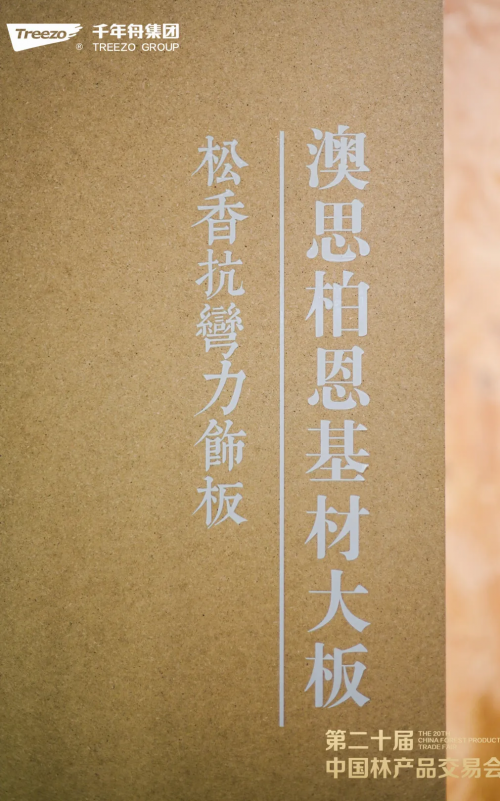 Treezo
®
千年舟集团
TREEZO GROUP
澳思柏恩基材大板
松香抗彎力飾板
第二十届
THE 20TH
CHINA FOREST PRODUCT
TRADE FAIR
中国林产品交易会